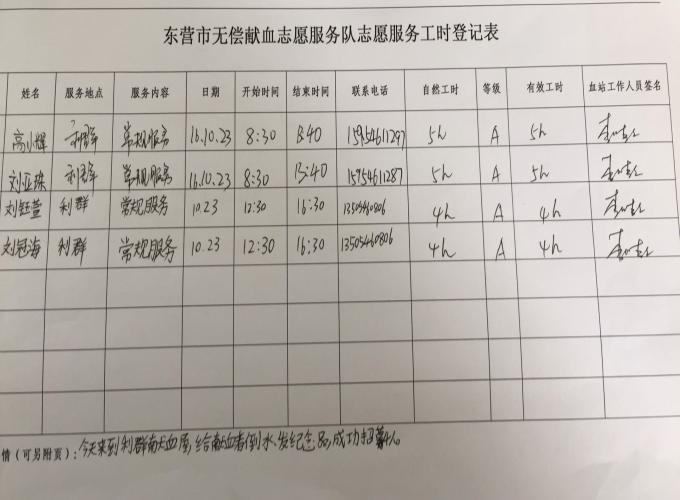 东营市无偿献血志愿服务队志愿服务工时登记表
姓名 服务地点 服务内容 日期 开始时间 结束时间 联系电话 自然工时 等级 有效工时 血站工作人员签名
高小辉 利群 常规服务 16.10.23 8:30 13:40 15954611297 5h A 5h
刘亚珠 利群 常规服务 16.10.23 8:30 13:40 15954611287 5h A 5h
刘钰萱 利群 常规服务 10.23 12:30 16:30 13505460806 4h A 4h
刘冠海 利群 常规服务 10.23 12:30 16:30 13505460806 4h A 4h
情(可另附页):今天来到利群献血屋,给献血者倒水、发纪念品,成功招募4人。